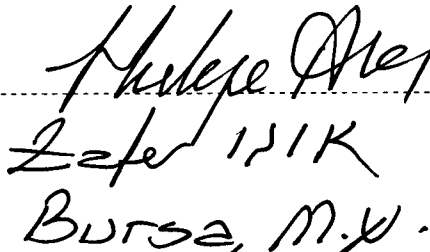 Zafer IŞIK
Bursa, M.V.